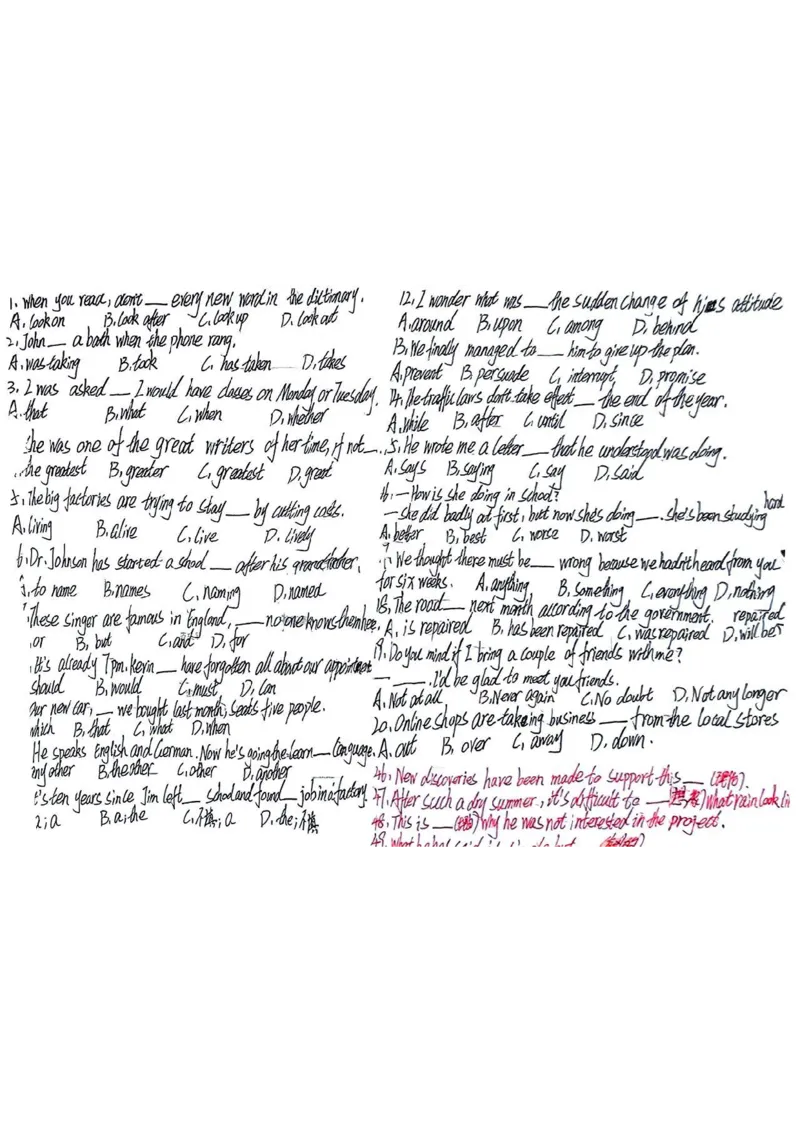 1. When you read, don't ___ every new word in the dictionary.
A. look on B. look after C. look up D. look out
2. John ___ a bath when the phone rang.
A. was taking B. took C. has taken D. takes
3. I was asked ___ I would have classes on Monday or Tuesday.
A. that B. what C. when D. whether
She was one of the great writers of her time, if not ___.
the greatest B. greater C. greatest D. great
5. The big factories are trying to stay ___ by cutting costs.
A. living B. alive C. live D. lively
6. Dr. Johnson has started a shool ___ after his grandfather.
to name B. names C. naming D. named
7. These singer are famous in England, ___ no one knows them here.
or B. but C. and D. for
It's already 7 pm. Kerin ___ have forgotten all about our appointment
should B. would C. must D. can
Our new car, ___ we bought last month, seats five people.
which B. that C. what D. when
He speaks English and German. Now he's going the learn ___ language.
my other B. the other C. other D. another
It's ten years since Jim left ___ school and found ___ job in a factory
a; a B. a; the C. 不填; a D. the; 不填
12. I wonder what was ___ the sudden change of his attitude
A. around B. upon C. among D. behind
B. We finally managed to ___ him to give up the plan.
A. prevent B. persuade C. interrupt D. promise
14. The traffic laws don't take effect ___ the end of the year.
A. while B. after C. until D. since
15. He wrote me a letter ___ that he understood was doing.
A. says B. saying C. say D. said
16. —How is she doing in school?
—She did badly at first, but now she's doing ___. she's been studying hard
A. better B. best C. worse D. worst
We thought there must be ___ wrong because we hadn't heard from you
for six weeks. A. anything B. something C. everything D. nothing
18. The road ___ next month according to the government.
A. is repaired B. has been repaired C. was repaired D. will be repaired
19. Do you mind if I bring a couple of friends with me?
— ___. I'd be glad to meet you friends.
A. Not at all B. Never again C. No doubt D. Not any longer
20. Online shops are taking business ___ from the local stores
A. out B. over C. away D. down.
46. New discoveries have been made to support this ___
47. After such a dry summer, it's difficult to ___ what rain look li
48. This is ___ why he was not interested in the project.
49. What